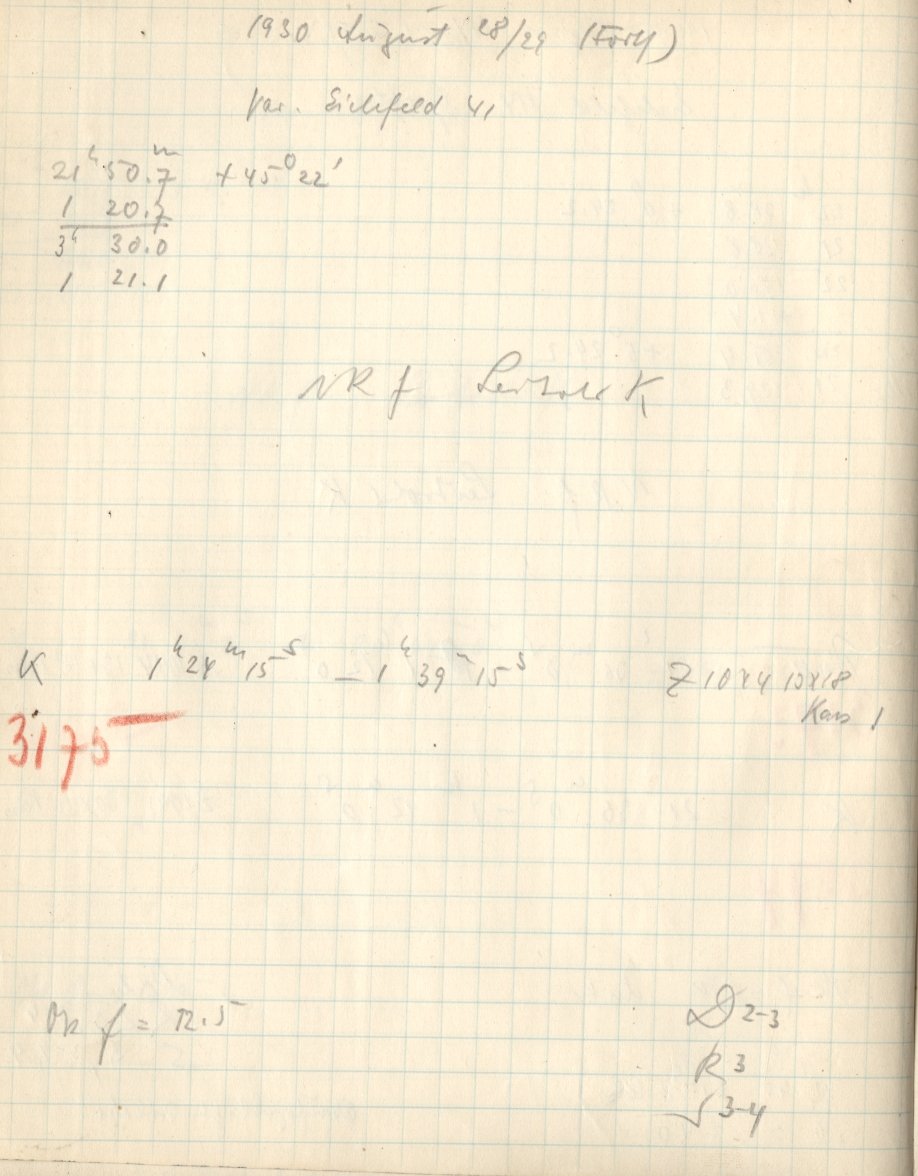 1930 August 28/29 (Forts)
par. Eichfeld 41
21ʰ 50.7ᵐ + 45⁰ 22'
1 20.7
3ʰ 30.0
1 21.1
NR f K
K 1ʰ 24ᵐ 15ˢ – 1ʰ 39ᵐ 15ˢ Z 10x4 13x18
Kas 1
3175
f = 12.5
D 2-3
R 3
S 3-4